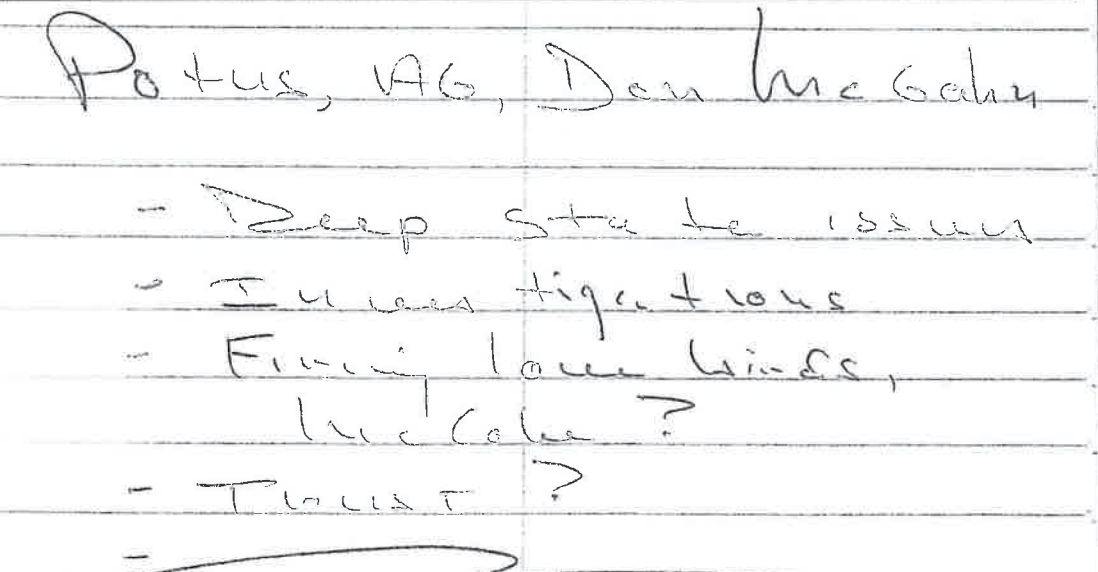 Potus, AG, Don McGahn
- Deep state issues
- Investigations
- Firing love birds,
McCabe ?
- Trust ?
-